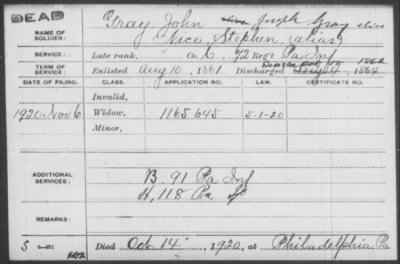 DEAD
NAME OF SOLDIER: Gray, John alias Joseph Gray alias
Vice Stephen (alias)
SERVICE: Late rank, Co. C, 72 Reg't Pa Inf
TERM OF SERVICE: Enlisted Aug 10, 1861 Discharged 1864
DATE OF FILING. CLASS. APPLICATION NO. LAW. CERTIFICATE NO.
Invalid,
1920 Nov 6 Widow, 1165645 5-1-20
Minor,
ADDITIONAL SERVICES: B. 91 Pa Inf
H, 118 Pa.
S
Died Oct 14, 1920, at Philadelphia Pa